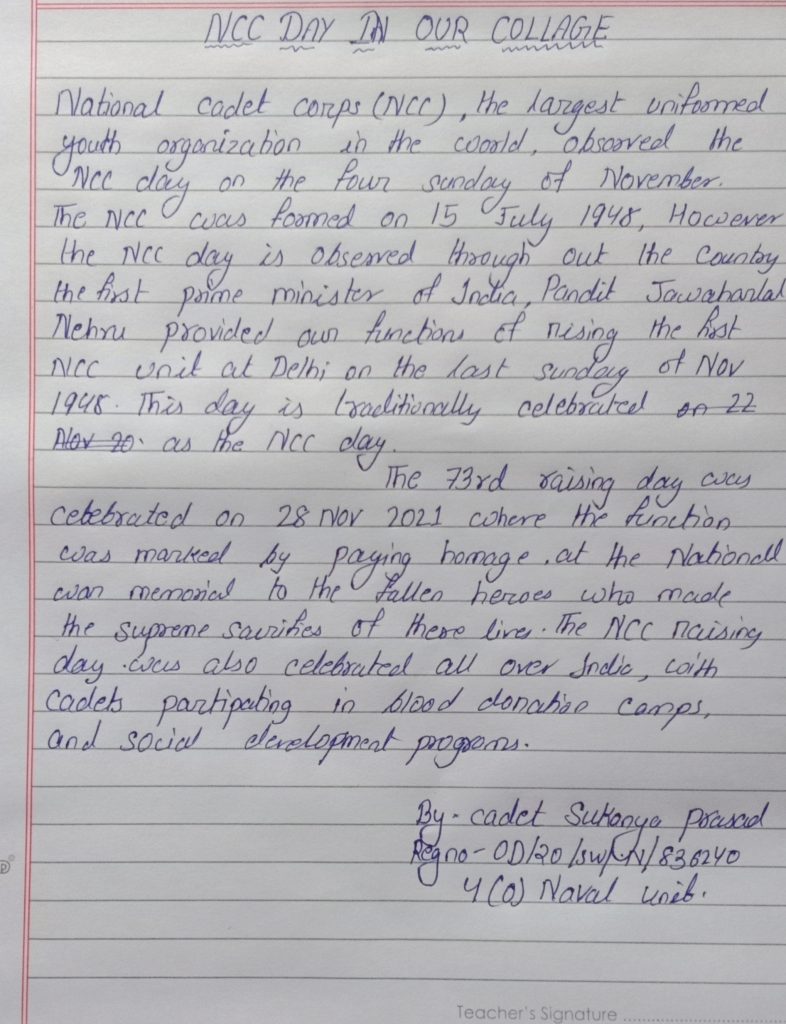 NCC DAY IN OUR COLLAGE
National cadet corps (NCC), the largest uniformed
youth organization in the woorld, observed the
NCC day on the four sunday of November.
The NCC was formed on 15 July 1948, However
the NCC day is observed through out the Country
the first prime minister of India, Pandit Jawaharlal
Nehru provided our functions of rising the first
NCC unit at Delhi on the last sunday of Nov
1948. This day is traditionally celebrated on 22
Nov 20. as the NCC day.
The 73rd raising day was
celebrated on 28 Nov 2021 where the function
was marked by paying homage. at the National
war memorial to the fallen heroes who made
the supreme sacrifies of there lives. The NCC raising
day was also celebrated all over India, with
cadets partipating in blood donation camps,
and social development programs.
By - cadet Sukanya prasad
Reg no - OD/20/SW/N/836240
4 (O) Naval unit.
Teacher's Signature